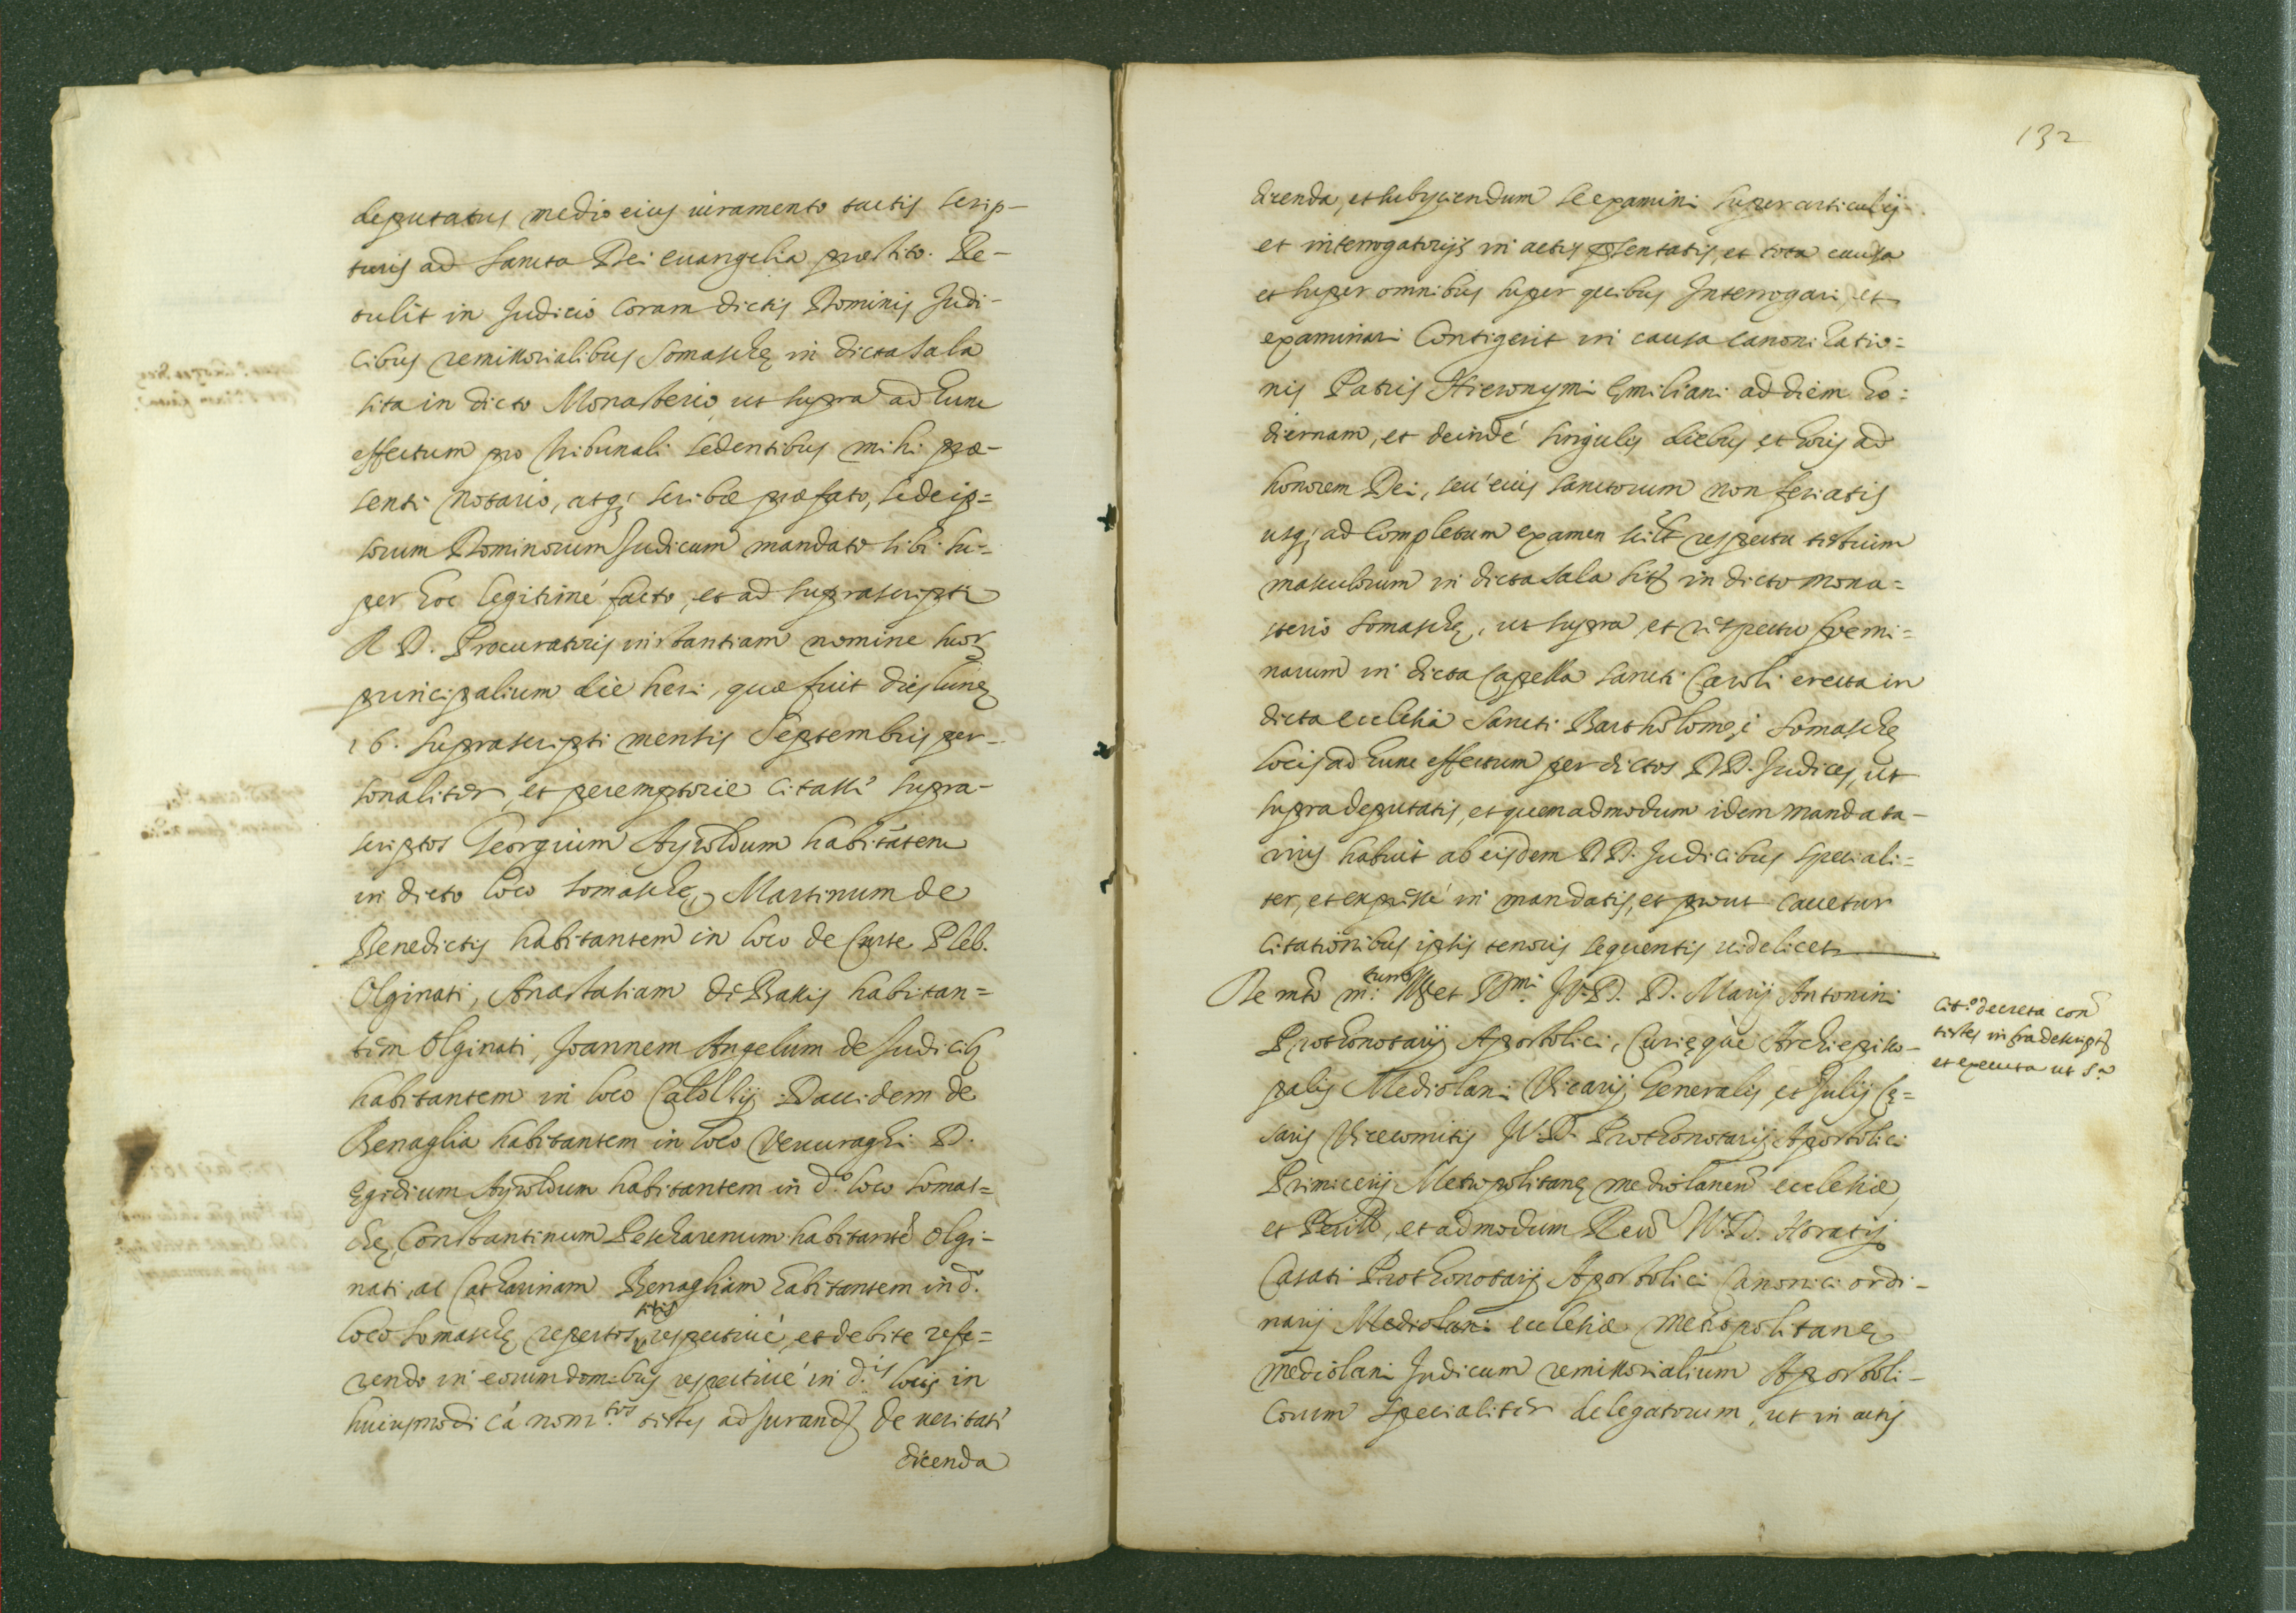 deputatus medio eius iuramento tactis scrip-
turis ad Sancta Dei euangelia prestito. Re-
tulit in Judicio coram dictis Dominis Judi-
cibus remissorialibus Somaschę in dicta sala
sita in dicto Monasterio, ut supra ad hunc
effectum pro tribunali sedentibus mihi præ-
senti Notario, atq; scribæ præfato, sede ip=
sorum Dominorum Judicum mandato sibi su=
per hoc legitimé facto, et ad suprascripti
R D. Procuratoris instantiam nomine suorꝫ
principalium die heri, quæ fuit dies lunę
16. suprascripti mensis Septembris per-
sonaliter, et peremptorie citasse supra-
scriptos Georgium Ayroldum habitatem
in dicto loco Somaschę, Martinum de
Benedictis habitantem in loco de Curte Pleb.
Olginati, Anastasiam de Basijs habitan=
tem Olginati, Joannem Angelum de Judicibꝫ
habitantem in loco Calolzij Dauidem de
Benaglia habitantem in loco Vercuraghi D.
Egidium Ayroldum habitantem in d.º loco Somas=
chę, Constantinum Pescharenum habitante Olgi=
nati, ac Catharinam Benagliam habitantem in d.º
loco Somaschę repertos respectiué, et debite refe=
rendo in eorum domibus respectiué in d.is locis in
huiusmodi cá nom.tos testes ad jurandꝫ de ueritate
dicenda
132
dicenda, et subijciendum se examini super articulis
et interrogatorijs in actis presentatis, et tota causa
et super omnibus super quibus Interrogari, et
examinari Contigerit in causa canonizatio=
nis Patris Hieronymi Emiliani ad diem ho=
diernam, et deindé singulis diebus et horis ad
honorem Dei, seu eius Sanctorum non feriatis
usq; ad completum examen scilt respectu testium
masculorum in dicta sala sitꝫ in dicto mona=
sterio Somaschę, ut supra et respectu foemi=
narum in dicta Capella Sancti Caroli erecta in
dicta ecclesia Sancti Bartholomęi Somaschę
locis ad hunc effectum per dictos DD. Judices, ut
supra deputatis, et quemadmodum idem mandata-
rius habuit ab eisdem DD. Judicibus speciali=
ter, et expressé in mandatis, et prout cauetur
citationibus ipsis tenoris sequentis uidelicet
De mto m: Ill et Rmi. J.V.D. D. Marij Antonini
Prothonotarij Apostolici, Curięque Archiepisco-
palis Mediolani Vicarij Generalis, et Julij Cę=
saris Vicecomitis J.V.D. Prothonotarij Apostolici
Primicerij Metropolitanę mediolanen ecclesiæ
et Perill, et admodum Reu V.D. Horatij
Casati Prothonotarij Apostolici Canonici ordi-
narij Mediolani ecclesiæ Metropolitanę
Mediolani Judicum remissorialium Apostoli-
corum specialiter delegatorum, ut in actis
Cit.º decreta con
testes infradescriptꝫ
et executa ut s.ª